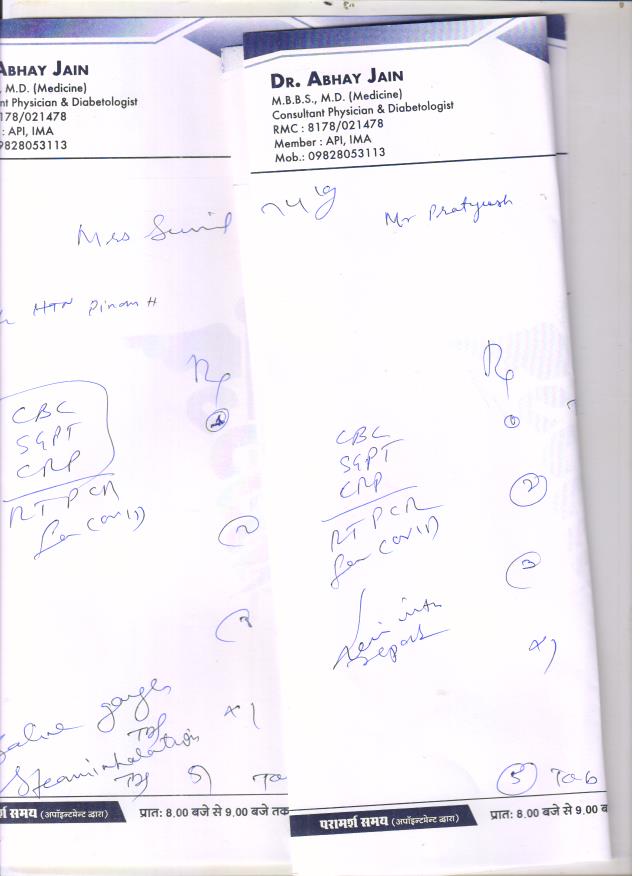 ABHAY JAIN
, M.D. (Medicine)
nt Physician & Diabetologist
178/021478
: API, IMA
9828053113
Mrs Sunil
HTN
Rx
CBC
SGPT
CRP
RTPCR
for COVID
2
3
Saline gargles
TDS
Steam inhalation
TDS
5)
र्श समय (अपॉइन्टमेन्ट द्वारा)
प्रात: 8.00 बजे से 9.00 बजे तक
DR. ABHAY JAIN
M.B.B.S., M.D. (Medicine)
Consultant Physician & Diabetologist
RMC : 8178/021478
Member : API, IMA
Mob.: 09828053113
Mr Pratyush
Rx
1
CBC
SGPT
CRP
2
RTPCR
for COVID
3
Review with
report
4)
5 Tab
परामर्श समय (अपॉइन्टमेन्ट द्वारा)
प्रात: 8.00 बजे से 9.00 ब